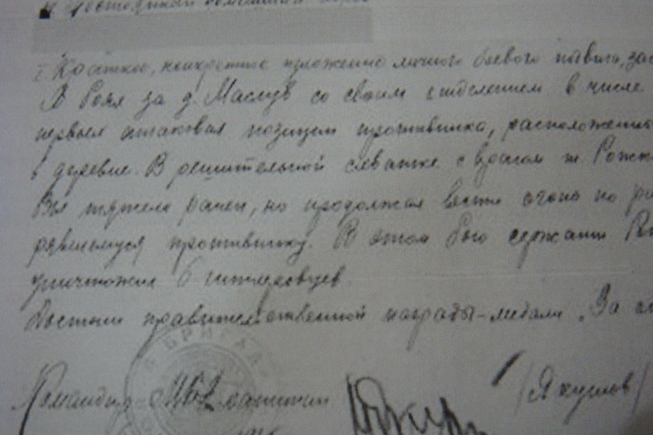 I. Краткое, конкретное изложение личного боевого подвига, зас
В боях за д. Маслув со своим отделением в числе
первых атаковал позиции противника, расположенн
в деревне. В решительной схватке с врагом т. Рожк
Был тяжело ранен, но продолжал вести огонь по
противнику. В этом бою сержант
уничтожил 6 гитлеровцев.
Достоин правительственной награды - медали „За
Командир МСБ 2 капитан
(Якушов)
БРИГАД